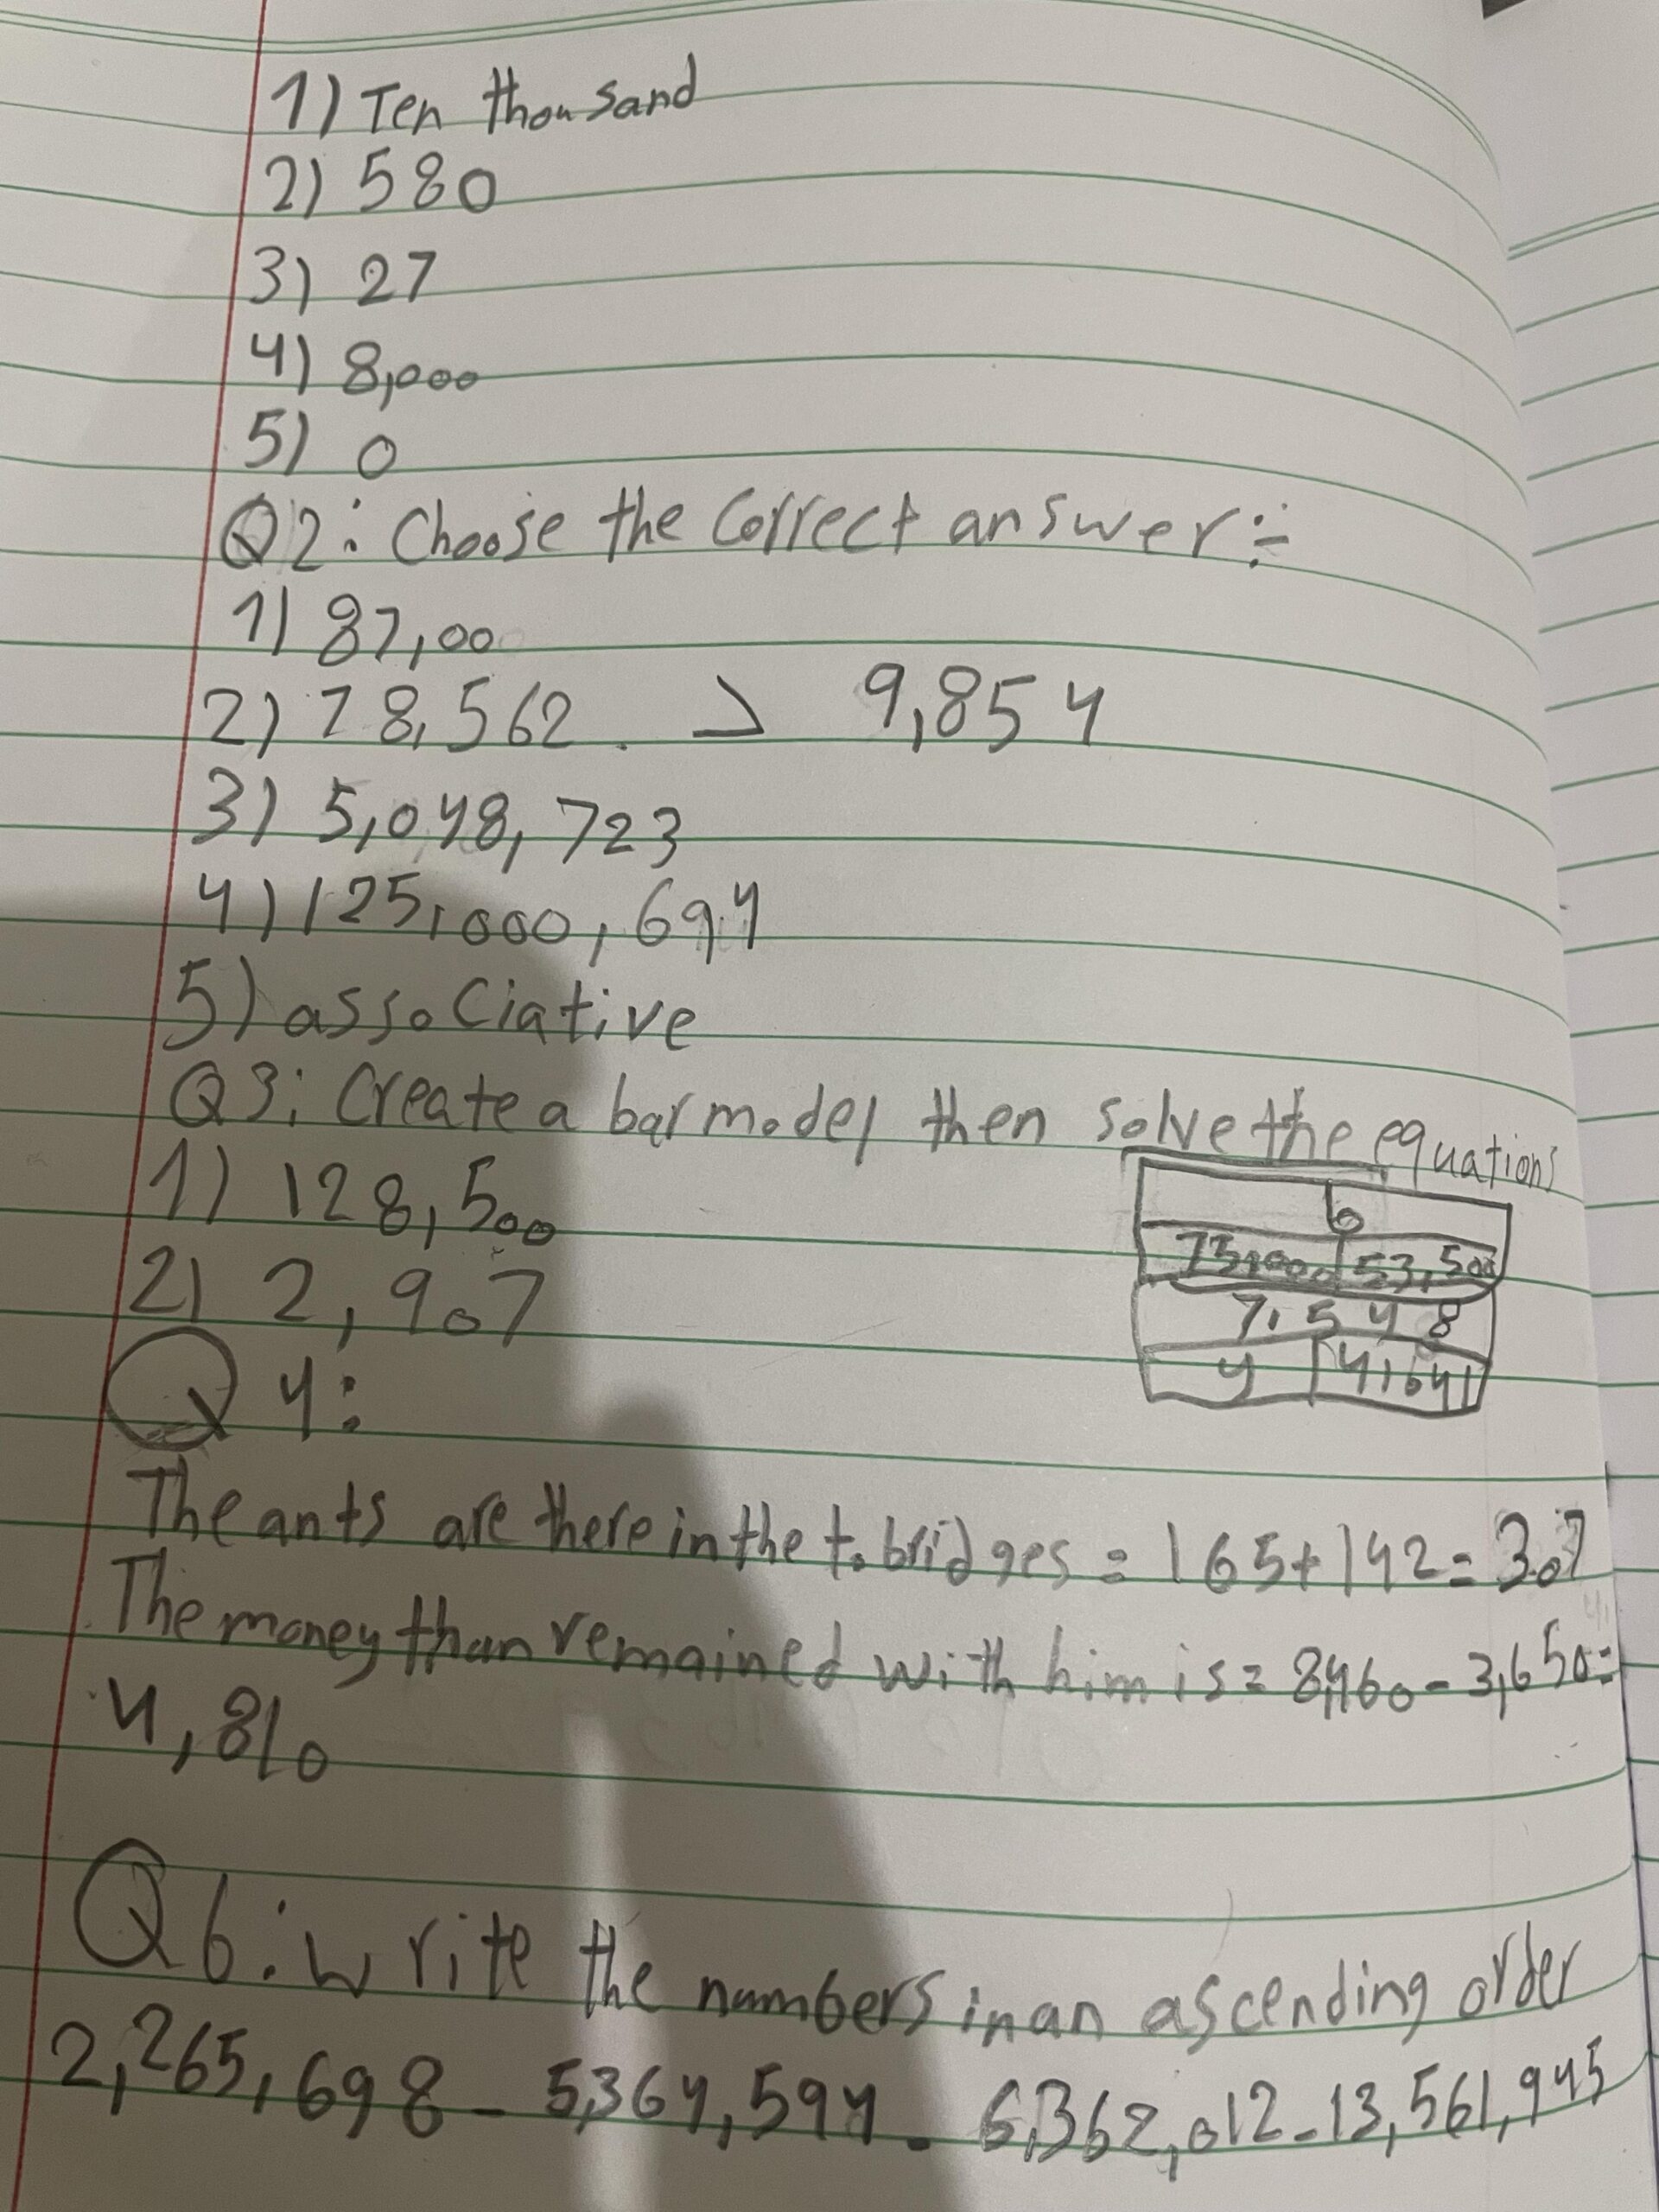 1) Ten thousand
2) 580
3) 27
4) 8,000
5) 0
Q2: Choose the Correct answer ÷
1) 87,000
2) 78,562 > 9,854
3) 5,048,723
4) 125,000,694
5) associative
Q3: Create a bar model then solve the equations
1) 128,500
2) 2,907
b
75,000 53,500
7,548
y 4,641
Q4:
The ants are there in the to bridges = 165+142=307
The money than remained with him is = 8,460 - 3,650=
4,810
Q6: write the numbers in an ascending order
2,265,698 - 5,364,594 - 6,362,012 - 13,561,945